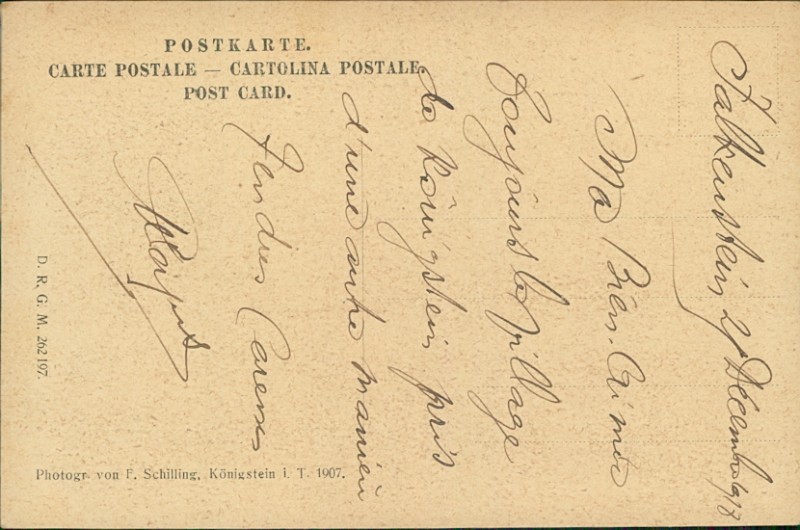 POSTKARTE.
CARTE POSTALE — CARTOLINA POSTALE.
POST CARD.
Falkenstein, 21 Décembre 1918
Ma Bien-Aimée
Toujours le Village
de Königstein, pris
d'une autre manière
Tendres Caresses
D. R. G. M. 262197.
Photogr. von F. Schilling, Königstein i. T. 1907.